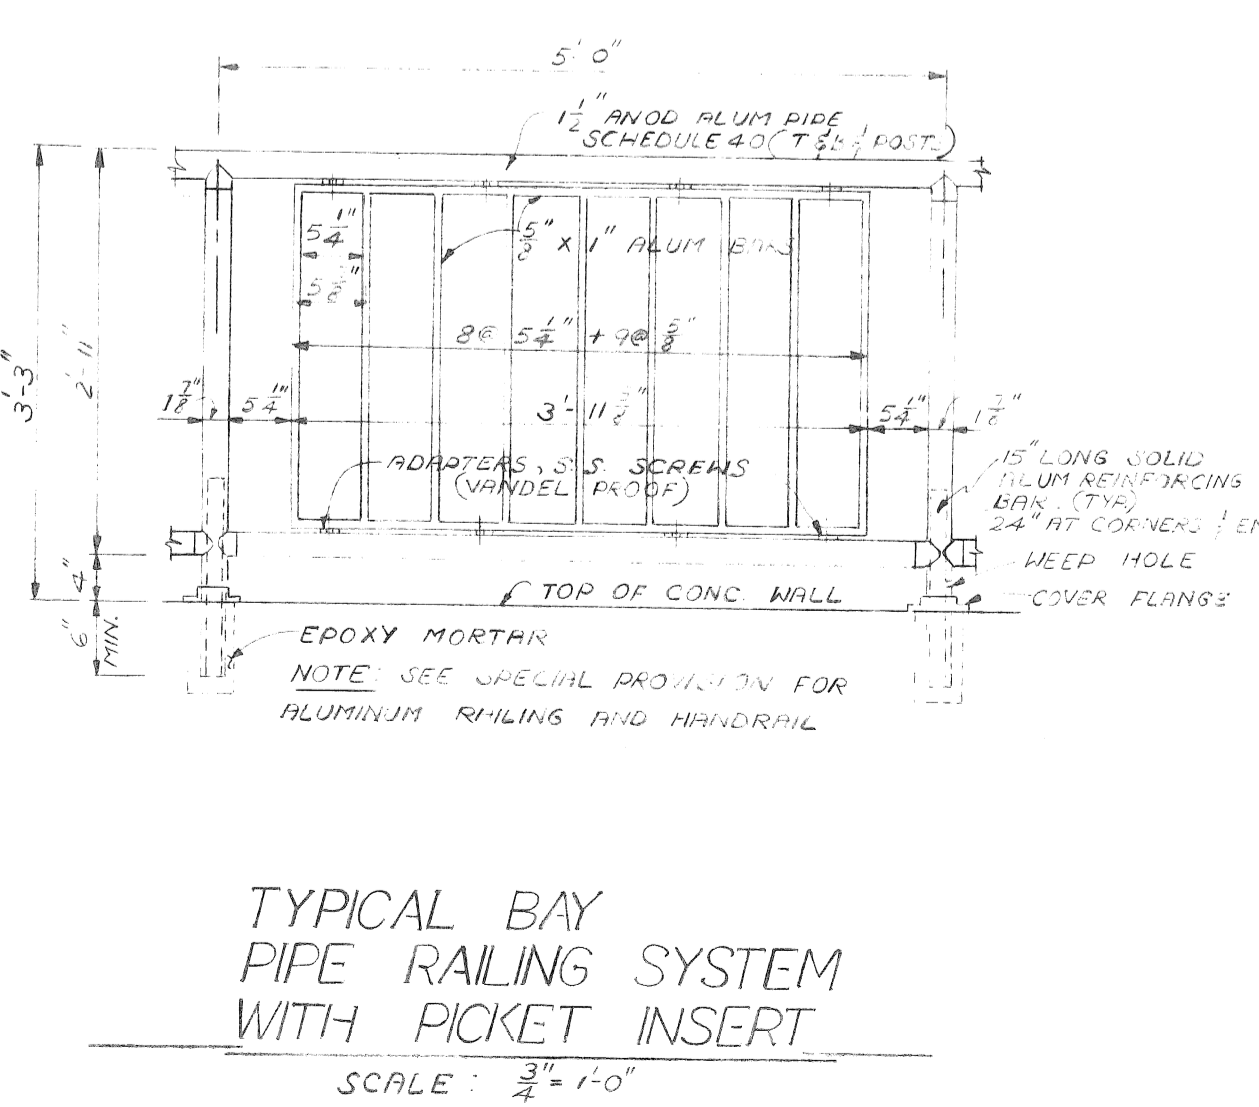 5'-0"
1 1/2" ANOD ALUM PIPE
SCHEDULE 40 (T & B & POSTS)
5 1/4"
5/8" X 1" ALUM BARS
5 7/8"
8@ 5 1/4" + 9@ 5/8"
3'-3"
2'-11"
1 7/8"
5 1/4"
3'-11 5/8"
5 1/4"
1 7/8"
ADAPTERS, S.S. SCREWS
(VANDEL PROOF)
15" LONG SOLID
ALUM REINFORCING
BAR. (TYP)
24" AT CORNERS &
WEEP HOLE
4"
TOP OF CONC. WALL
COVER FLANGE
6"
MIN.
EPOXY MORTAR
NOTE: SEE SPECIAL PROVISION FOR
ALUMINUM RAILING AND HANDRAIL
TYPICAL BAY
PIPE RAILING SYSTEM
WITH PICKET INSERT
SCALE: 3/4" = 1'-0"